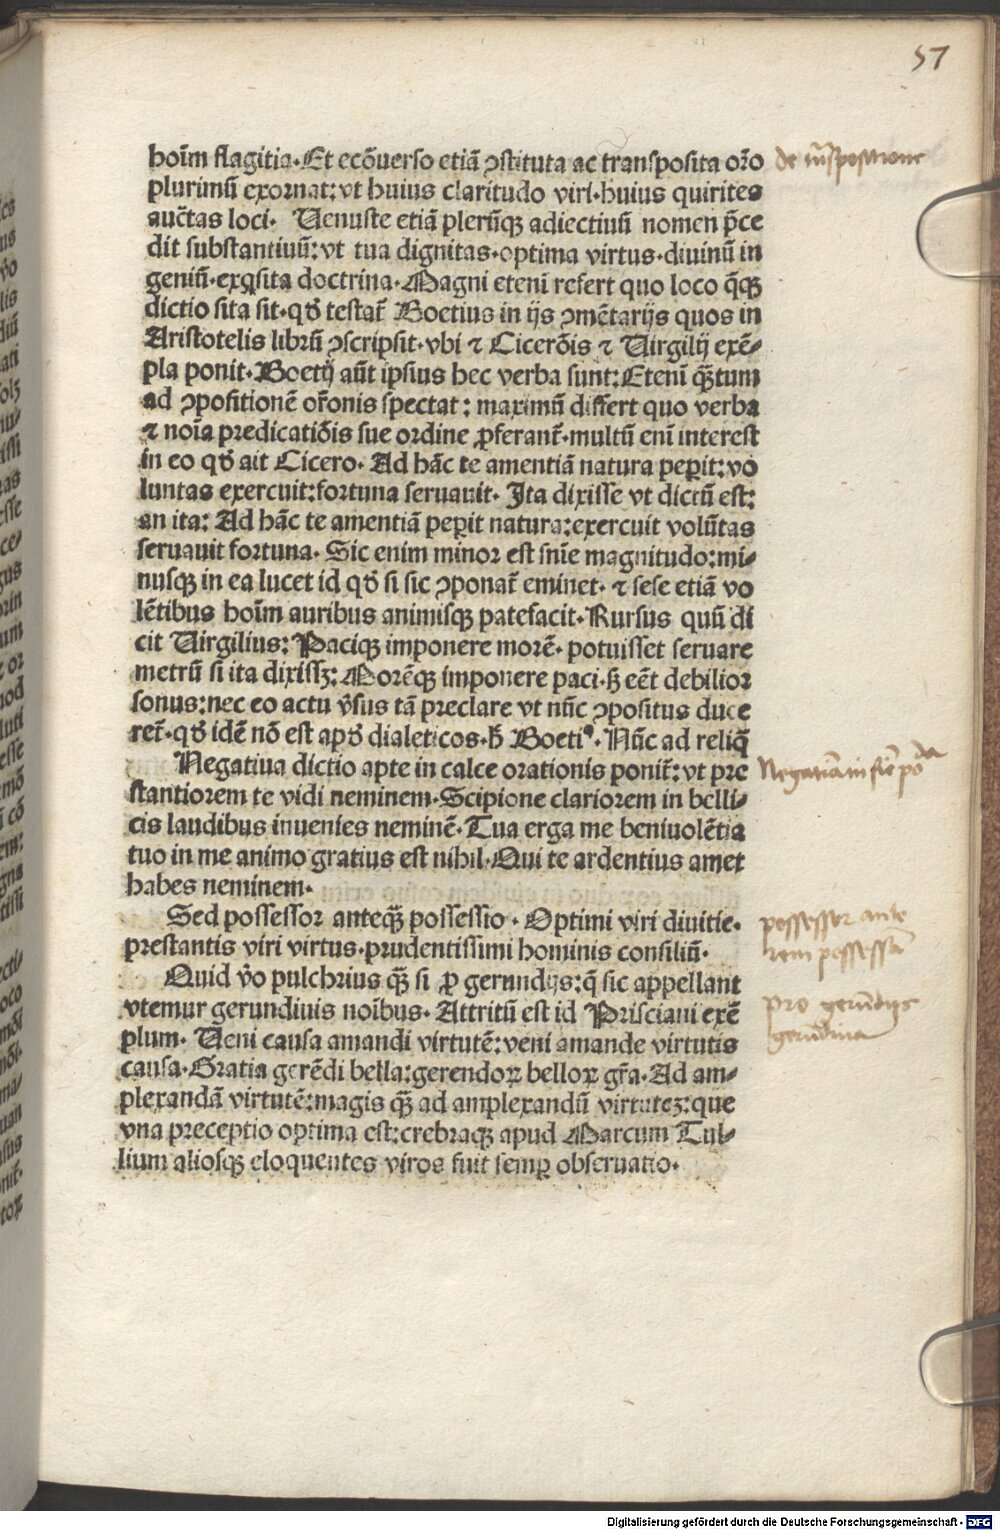 57
hoīm flagitia. Et ecōuerso etiā ↄstituta ac transposita or̄o
de trāspositione
plurimū exornat: vt huius claritudo viri. huius quirites
auctas loci. Uenuste etiā plerūqꝫ adiectiuū nomen p̄ce
dit substantiuū: vt tua dignitas. optima virtus. diuinū in
geniū. exq̄sita doctrina. Magni etenī refert quo loco q̄qꝫ
dictio sita sit. qđ testat̄ Boetius in ijs ↄmētarijs quos in
Aristotelis librū ↄscripsit. vbi ⁊ Cicerōis ⁊ Uirgilij exē-
pla ponit. Boetij aūt ipsius hec verba sunt: Etenī qꝫ̄tum
ad ↄpositionē or̄onis spectat: maximū differt quo verba
⁊ noīa predicatiōis sue ordine ꝓferant̄. multū enī interest
in eo qđ ait Cicero. Ad hāc te amentiā natura peꝑit: vo
luntas exercuit: fortuna seruauit. Ita dixisse vt dictū est:
an ita: Ad hāc te amentiā peꝑit natura: exercuit volūtas
seruauit fortuna. Sic enim minor est snīe magnitudo: mi-
nusqꝫ in ea lucet id qđ si sic ↄponat̄ eminet. ⁊ sese etiā vo
lētibus hoīm auribus animisqꝫ patefacit. Rursus quū di
cit Uirgilius: Paciqꝫ imponere morē. potuisset seruare
metrū si ita dixissꝫ: Morēqꝫ imponere paci. sꝫ eēt debilior
sonus: nec eo actu v̄sus tā preclare vt nūc ↄpositus duce
ret̄. qđ idē nō est apđ dialeticos. h̄ Boetiꝰ. Nūc ad reliq̄
Negatiua dictio apte in calce orationis ponit̄: vt pre
Negatiuā in fine pōda
stantiorem te vidi neminem. Scipione clariorem in belli-
cis laudibus inuenies neminē. Tua erga me beniuolētia
tuo in me animo gratius est nihil. Qui te ardentius amet
habes neminem.
Sed possessor anteqꝫ̄ possessio. Optimi viri diuitie.
possessor ante
prestantis viri virtus. prudentissimi hominis consiliū.
rem possessā
Quid v̄o pulchrius qꝫ̄ si ꝓ gerundijs: q̄ sic appellant
pro gerūdijs
vtemur gerundiuis noībus. Attritū est id Prisciani exē
gerūdiua
plum. Ueni causa amandi virtutē: veni amande virtutis
causa. Gratia gerēdi bella: gerendoꝝ belloꝝ gr̄a. Ad am-
plexandā virtutē: magis qꝫ̄ ad amplexandū virtutez: que
vna preceptio optima est: crebraqꝫ apud Marcum Tul-
lium aliosqꝫ eloquentes viros fuit semꝑ obseruatio.
Digitalisierung gefördert durch die Deutsche Forschungsgemeinschaft - DFG